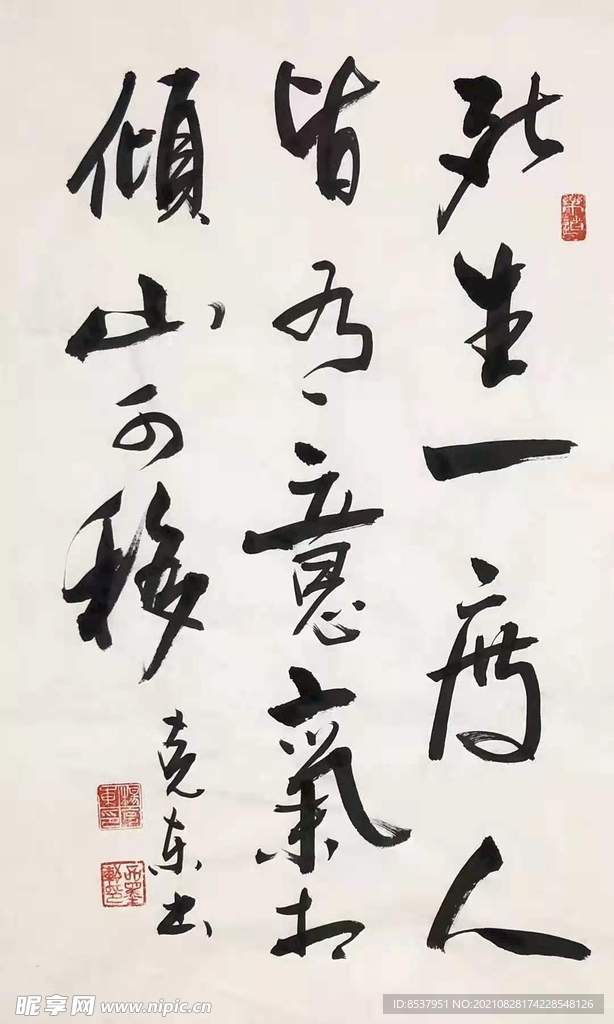 死生一度人
皆有意氣相
傾山可移
克东书
昵享网 www.nipic.cn
ID:8537951 NO:20210828174228548126